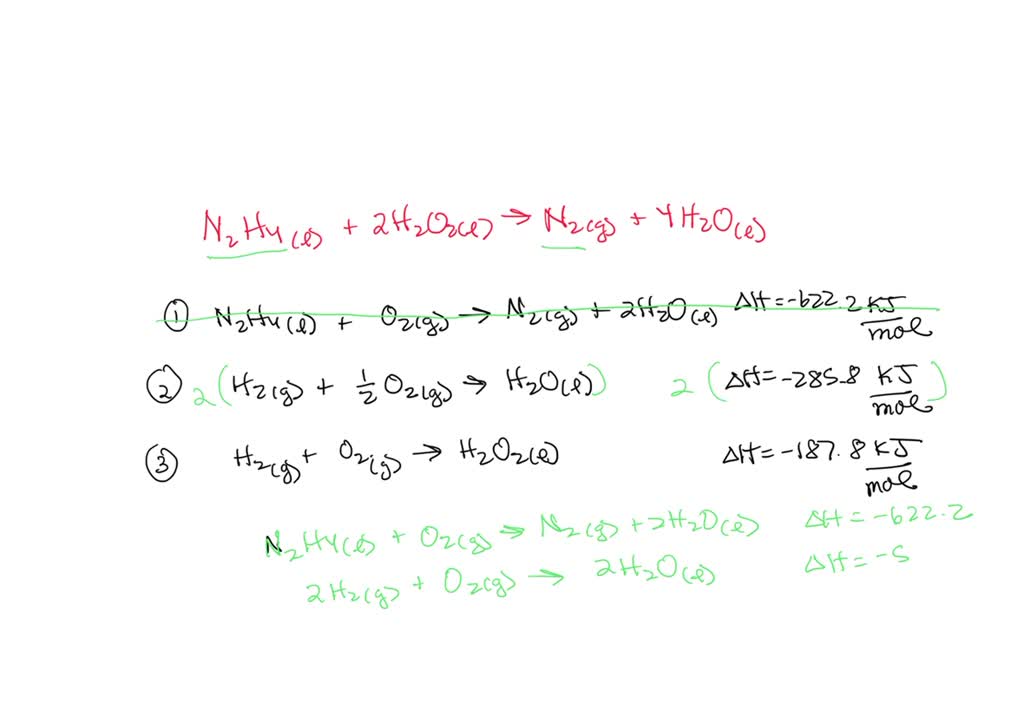 N₂H₄(l) + 2H₂O₂(l) → N₂(g) + 4H₂O(l)
① N₂H₄(l) + O₂(g) → N₂(g) + 2H₂O(l) ΔH = -622.2 KJ/mol
② 2(H₂(g) + 1/2 O₂(g) → H₂O(l)) 2(ΔH = -285.8 KJ/mol)
③ H₂(g) + O₂(g) → H₂O₂(l) ΔH = -187.8 KJ/mol
N₂H₄(l) + O₂(g) → N₂(g) + 2H₂O(l) ΔH = -622.2
2H₂(g) + O₂(g) → 2H₂O(l) ΔH = -5